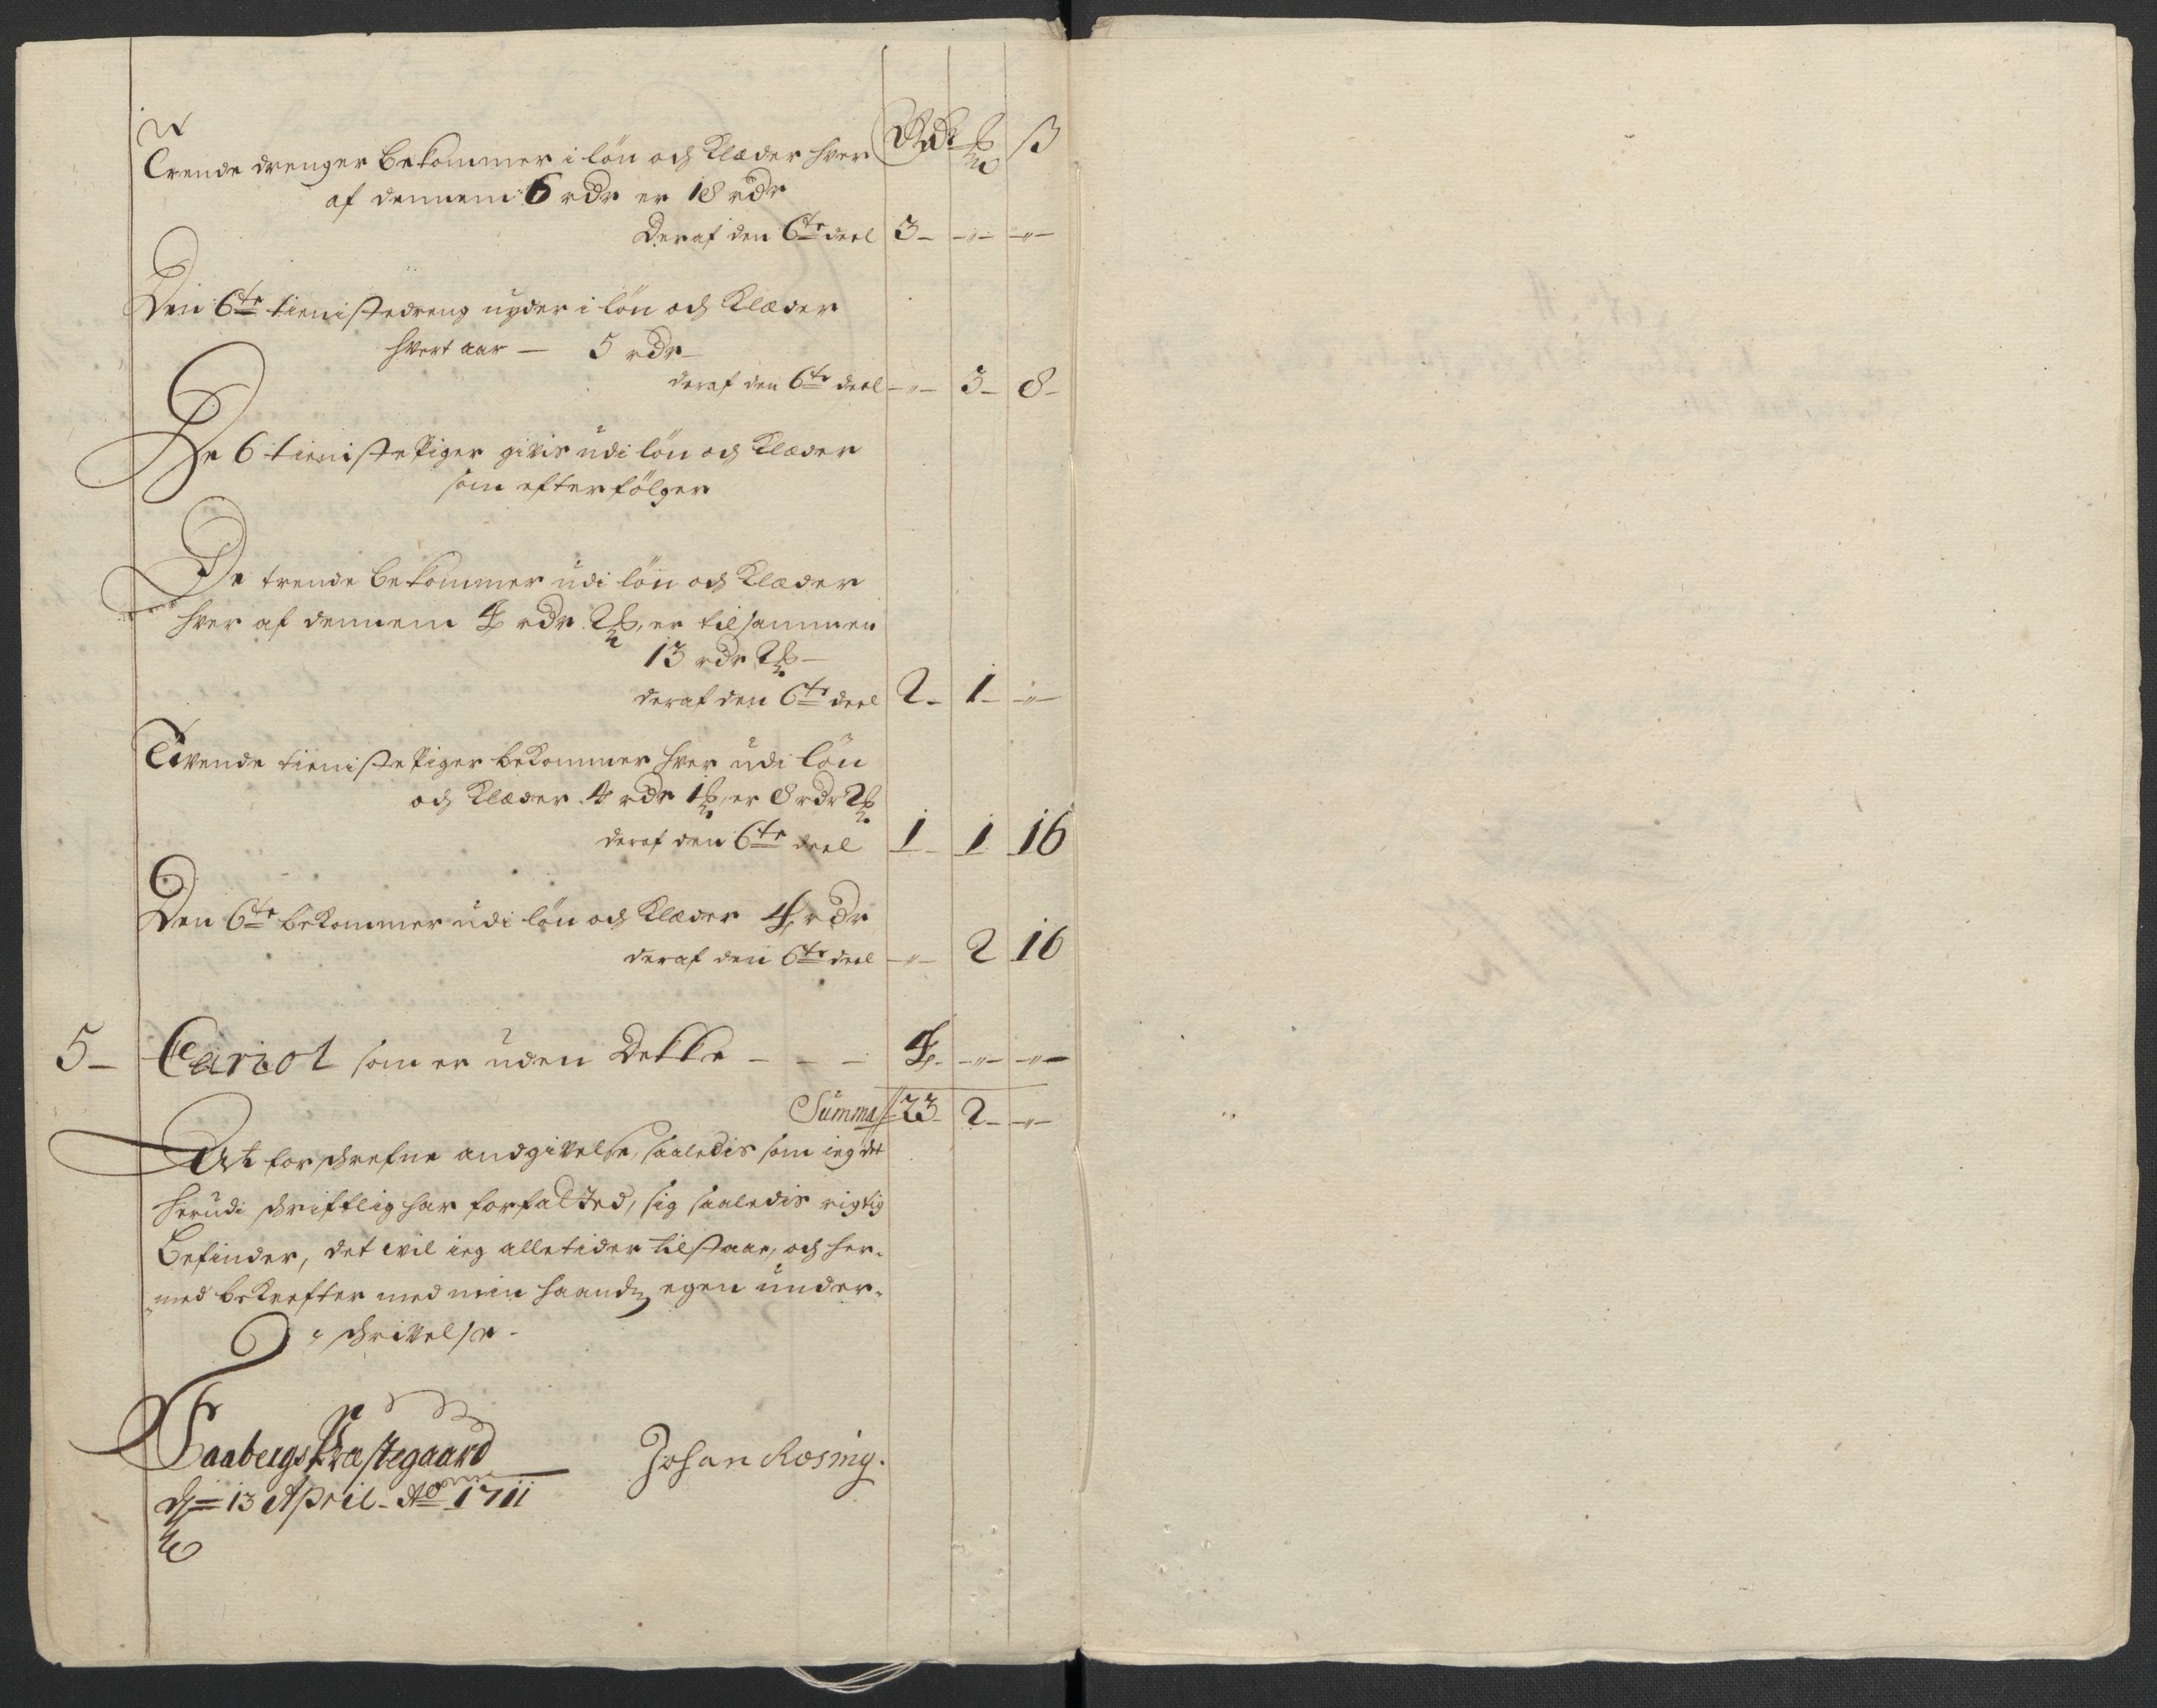 Rdr ℔ ß
Trende drenger bekommer i lön och Klæder hver
af dennem 6 rdr er 18 rdr
Deraf den 6te deel 3 - -"- -"-
Den 6te tienistedreng nyder i lön och Klæder
hvert aar — 5 rdr
deraf den 6te deel -"- 3 - 8 -
De 6 tieniste Piger givis udi lön och Klæder
som efterfölger
De trende bekommer udi lön och Klæder
hver af dennem 4 rdr 2 ℔, er tilsammen
13 rdr 2 ℔ -
deraf den 6te deel 2 - 1 - -"-
Tvende tieniste Piger bekommer hver udi lön
och Klæder 4 rdr 1 ℔, er 8 rdr 2 ℔
deraf den 6te deel 1 - 1 16
Den 6te bekommer udi lön och Klæder 4 rdr
deraf den 6te deel -"- 2 16
5 - Cariol som er uden Dekke - - - 4 - -"- -"-
Summa 23 - 2 - -"-
At forschrefne andgivelse, saaledis som ieg det
herudi schrifftlig har forfatted, sig saaledis rigtig
Befinder, det vil ieg alletider tilstaae, och her-
med bekrefter med min haandz egen under-
schrivelse -
Faabergs Præstegaard
d 13 April Ao 1711
Johan Rosing.